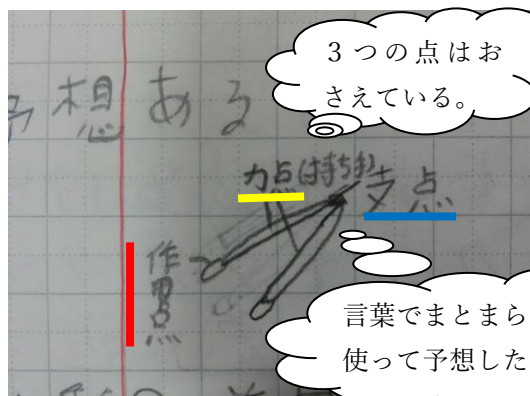 ３つの点はお
さえている。
予想ある
力点(持ち手)
支点
作用点
言葉でまとまら
使って予想した